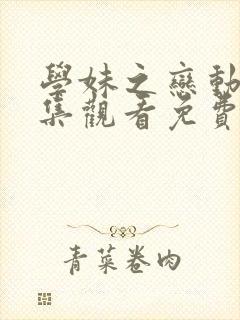 學妹之戀動
集觀看免費
青菜卷肉